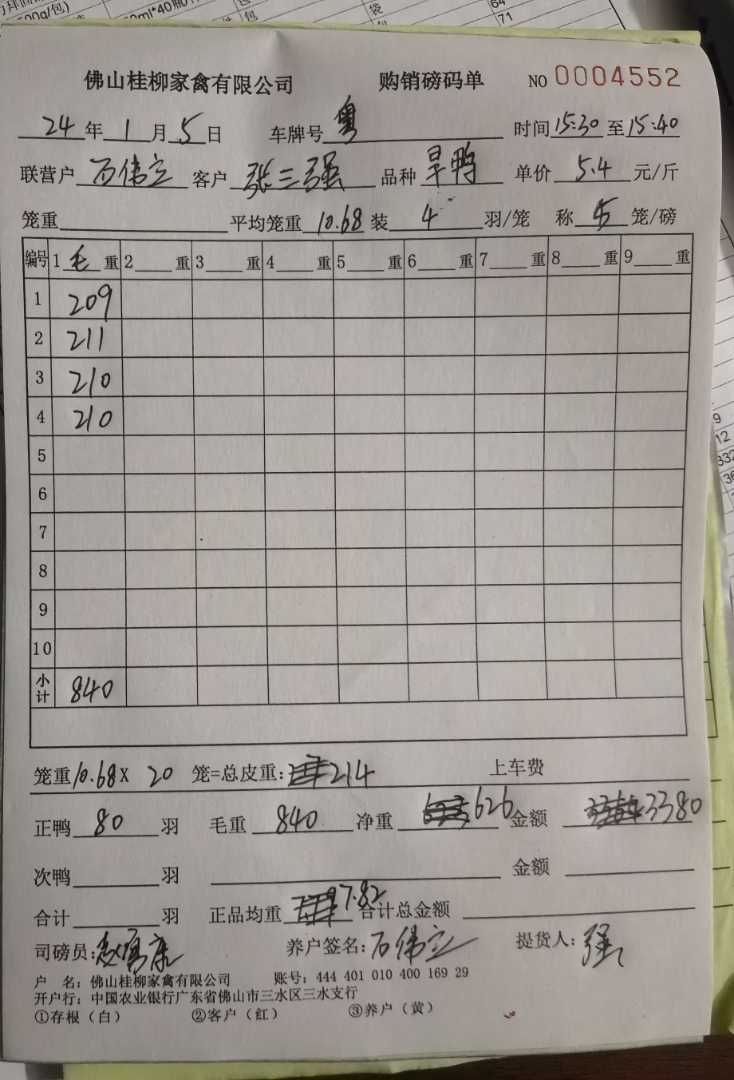 佛山桂柳家禽有限公司 购销磅码单 NO 0004552
24 年 1 月 5 日 车牌号 粤 时间 15:30 至 15:40
联营户 石伟立 客户 张三强 品种 旱鸭 单价 5.4 元/斤
笼重 平均笼重 10.68 装 4 羽/笼 称 5 笼/磅
编号 1 毛 重 2 重 3 重 4 重 5 重 6 重 7 重 8 重 9 重
1 209
2 211
3 210
4 210
5
6
7
8
9
10
小计 840
笼重 10.68 X 20 笼=总皮重: 214 上车费
正鸭 80 羽 毛重 840 净重 626 金额 3380
次鸭 羽 金额
合计 羽 正品均重 7.82 合计总金额
司磅员: 养户签名: 石伟立 提货人: 强
户 名: 佛山桂柳家禽有限公司 账号: 444 401 010 400 169 29
开户行: 中国农业银行广东省佛山市三水区三水支行
①存根（白） ②客户（红） ③养户（黄）